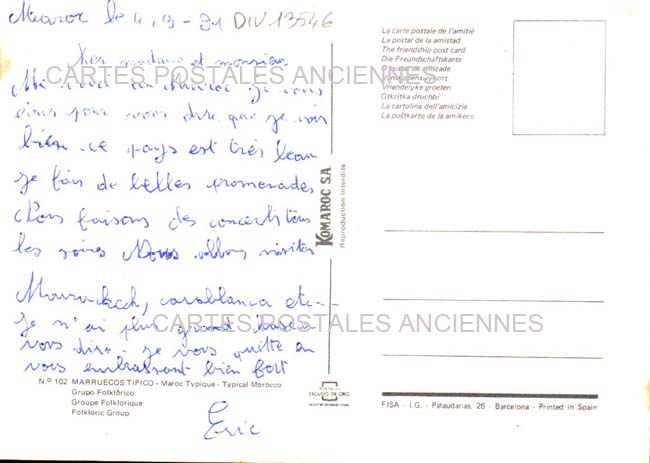 Maroc le 4, 9 - 91 DIV 13546
Cher madame et monsieur
CARTES POSTALES ANCIENNES
Me voici au Maroc je vous
écris pour vous dire que je vais
bien. ce pays est très beau
je fais de belles promenades
Nous faisons des concerts tous
les soirs Nous allons visiter
Marrackech, casablanca etc - -
je n'ai plus grand chose a
CARTES POSTALES ANCIENNES
vous dire. je vous quitte en
vous embrassant bien fort
Eric
N.º 102 MARRUECOS TIPICO - Maroc Typique - Typical Morocco
Grupo Folklórico
Groupe Folklorique
Folkloric Group
KOMAROC S.A.
Reproduction interdite
ESCUDO DE ORO
La carte postale de l'amitié
La postal de la amistad
The friendship post card
Die Freundschaftskarte
O postal de amizade
Vänskapens vykort
Vriendelyke groeten
Otkritka druchbi
La cartolina dell'amicizia
La poŝtkarto de la amikeco
FISA - I.G. - Palaudarias, 26 - Barcelona - Printed in Spain